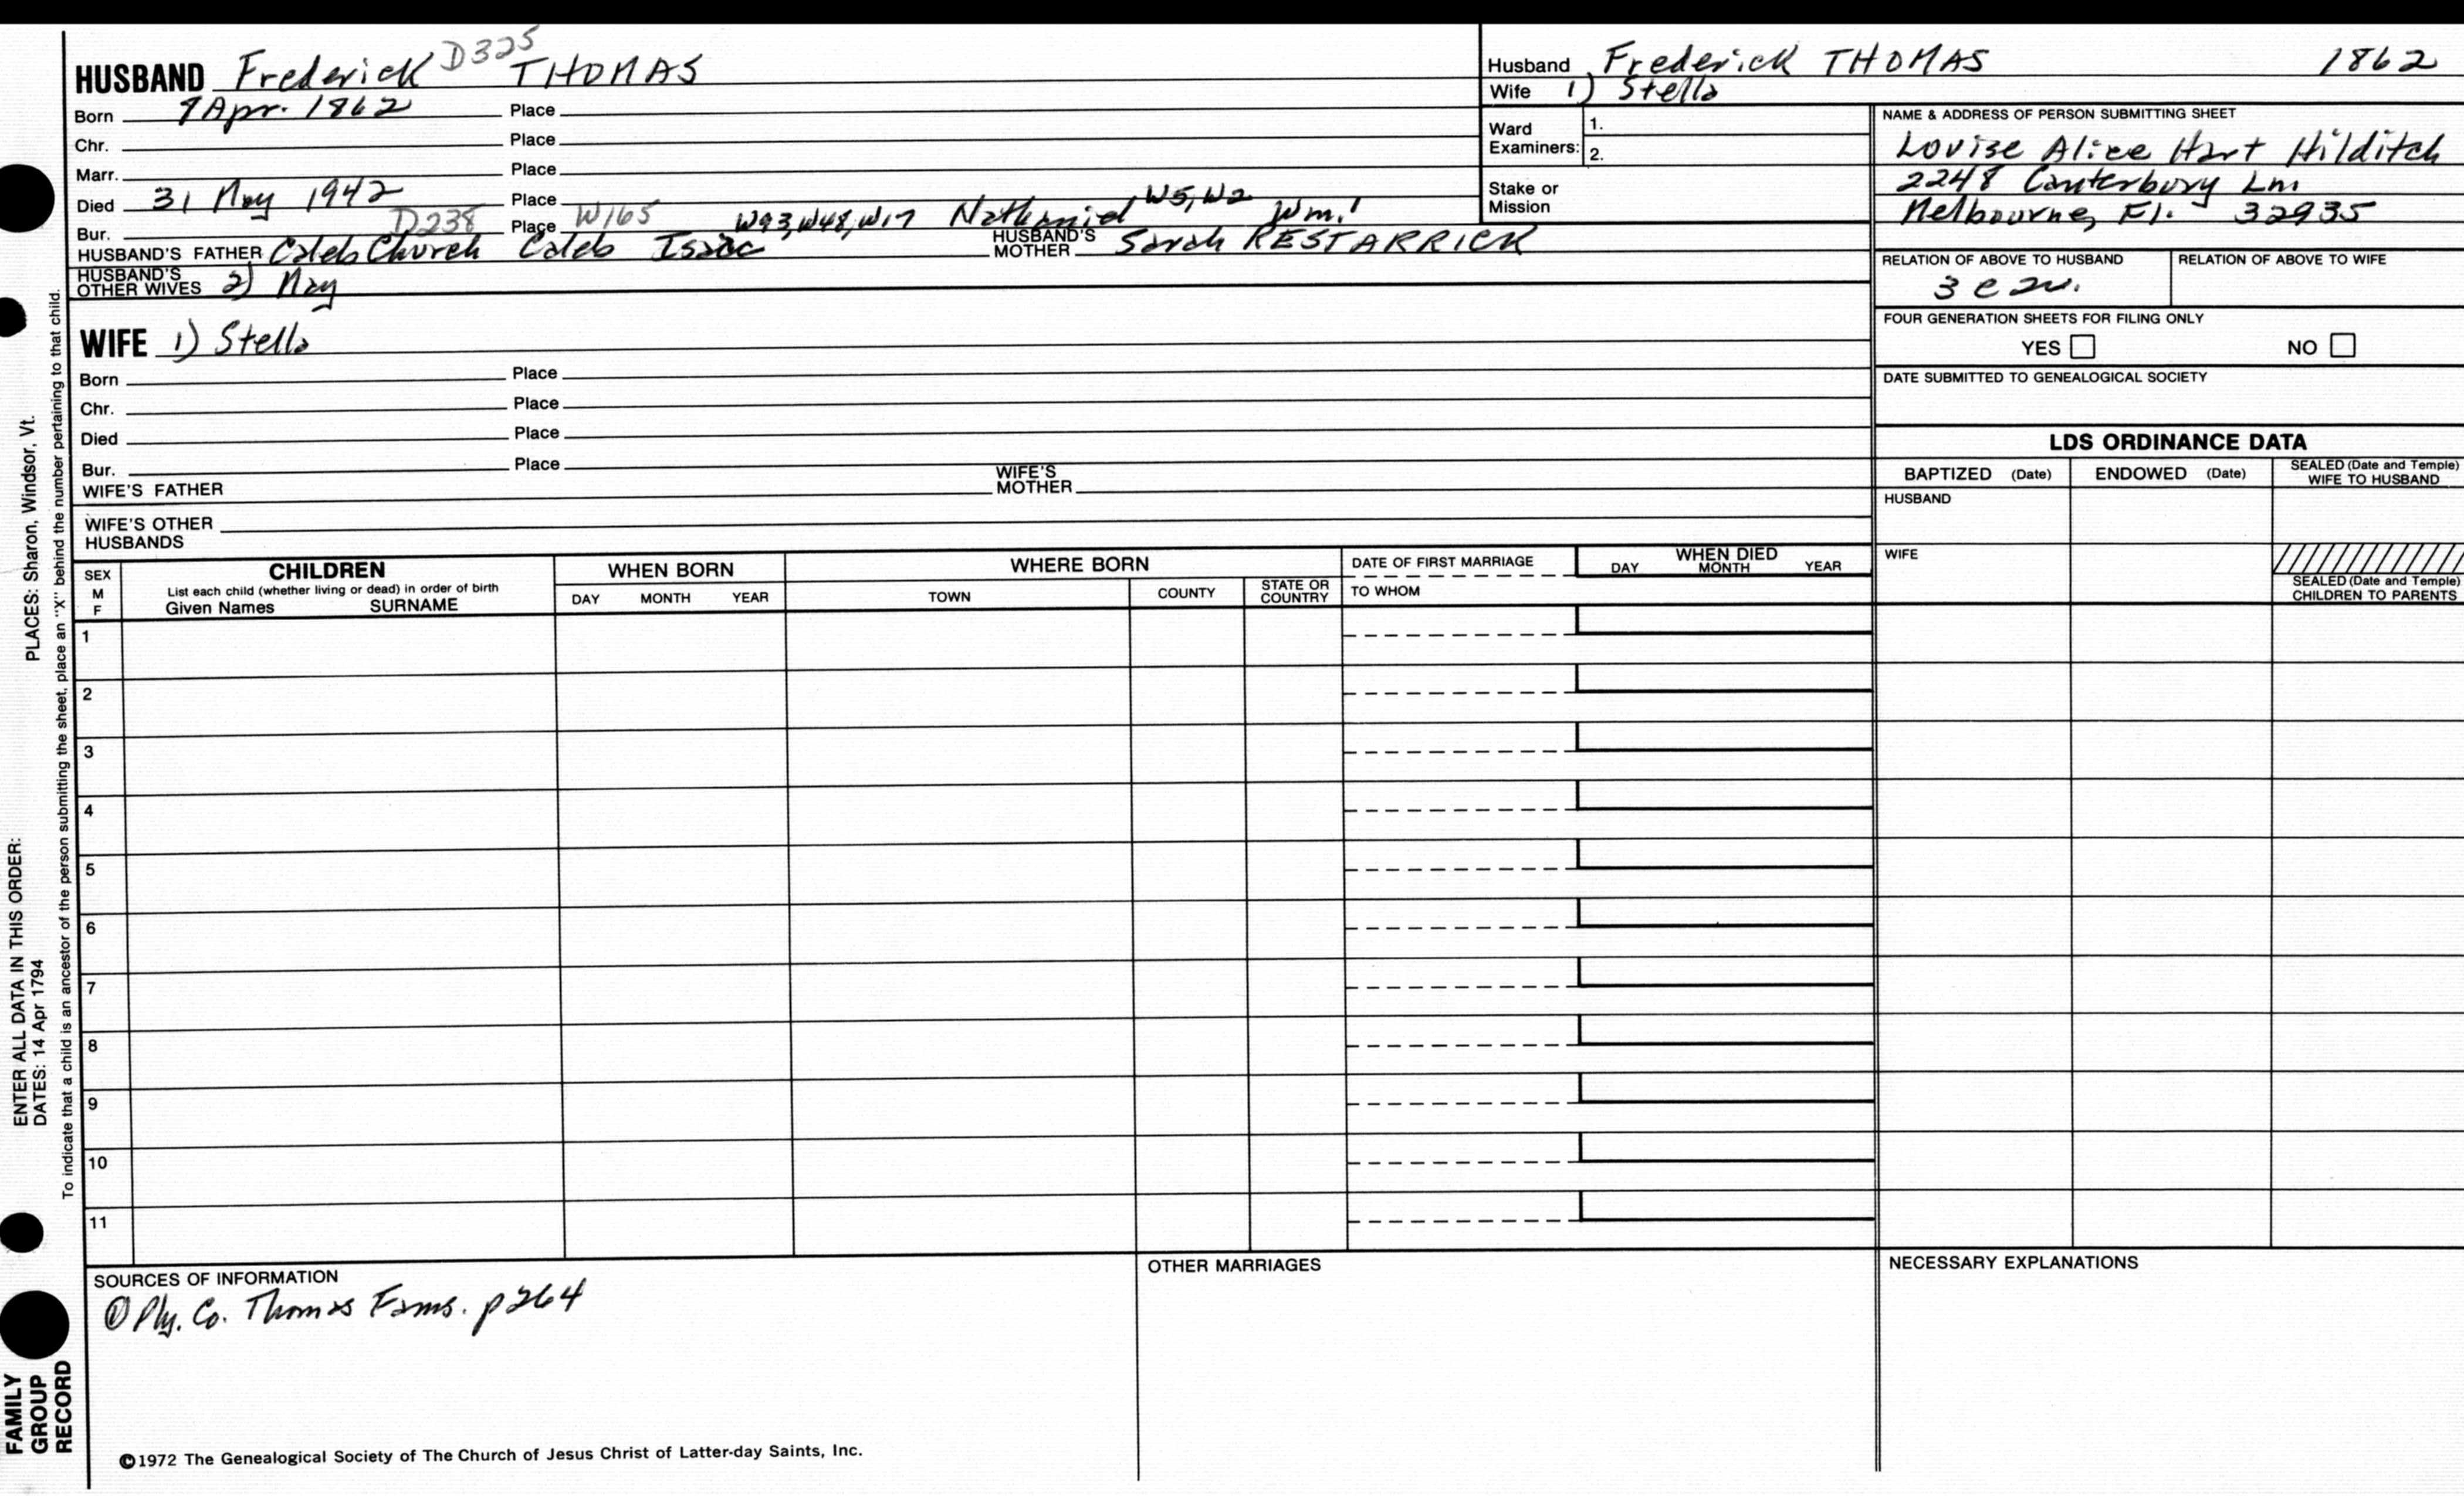 HUSBAND Frederick D325 THOMAS
Born Apr. 1862 Place
Chr. Place
Marr. Place
Died 31 May 1942 Place
Bur. D238 Place W165 W93, W48, W17 Nathaniel W5, W2 Wm.1
HUSBAND'S FATHER Caleb Church Caleb Isaac HUSBAND'S MOTHER Sarah RESTARRICK
HUSBAND'S OTHER WIVES 2) May
WIFE 1) Stella
Born Place
Chr. Place
Died Place
Bur. Place
WIFE'S FATHER WIFE'S MOTHER
WIFE'S OTHER HUSBANDS
Husband Frederick THOMAS 1862
Wife 1) Stella
Ward Examiners: 1.
2.
Stake or Mission
NAME & ADDRESS OF PERSON SUBMITTING SHEET
Louise Alice Hart Hilditch
2248 Canterbury Ln.
Melbourne, Fl. 32935
RELATION OF ABOVE TO HUSBAND RELATION OF ABOVE TO WIFE
3 c 2r.
FOUR GENERATION SHEETS FOR FILING ONLY
YES NO
DATE SUBMITTED TO GENEALOGICAL SOCIETY
LDS ORDINANCE DATA
BAPTIZED (Date) ENDOWED (Date) SEALED (Date and Temple) WIFE TO HUSBAND
HUSBAND
WIFE
SEALED (Date and Temple) CHILDREN TO PARENTS
SEX M F
CHILDREN
List each child (whether living or dead) in order of birth
Given Names SURNAME
WHEN BORN
DAY MONTH YEAR
WHERE BORN
TOWN COUNTY STATE OR COUNTRY
DATE OF FIRST MARRIAGE
TO WHOM
WHEN DIED
DAY MONTH YEAR
1
2
3
4
5
6
7
8
9
10
11
SOURCES OF INFORMATION
① Ply. Co. Thomas Fams. p264
OTHER MARRIAGES
NECESSARY EXPLANATIONS
©1972 The Genealogical Society of The Church of Jesus Christ of Latter-day Saints, Inc.
FAMILY
GROUP
RECORD
ENTER ALL DATA IN THIS ORDER:
DATES: 14 Apr 1794 PLACES: Sharon, Windsor, Vt.
To indicate that a child is an ancestor of the person submitting the sheet, place an "X" behind the number pertaining to that child.